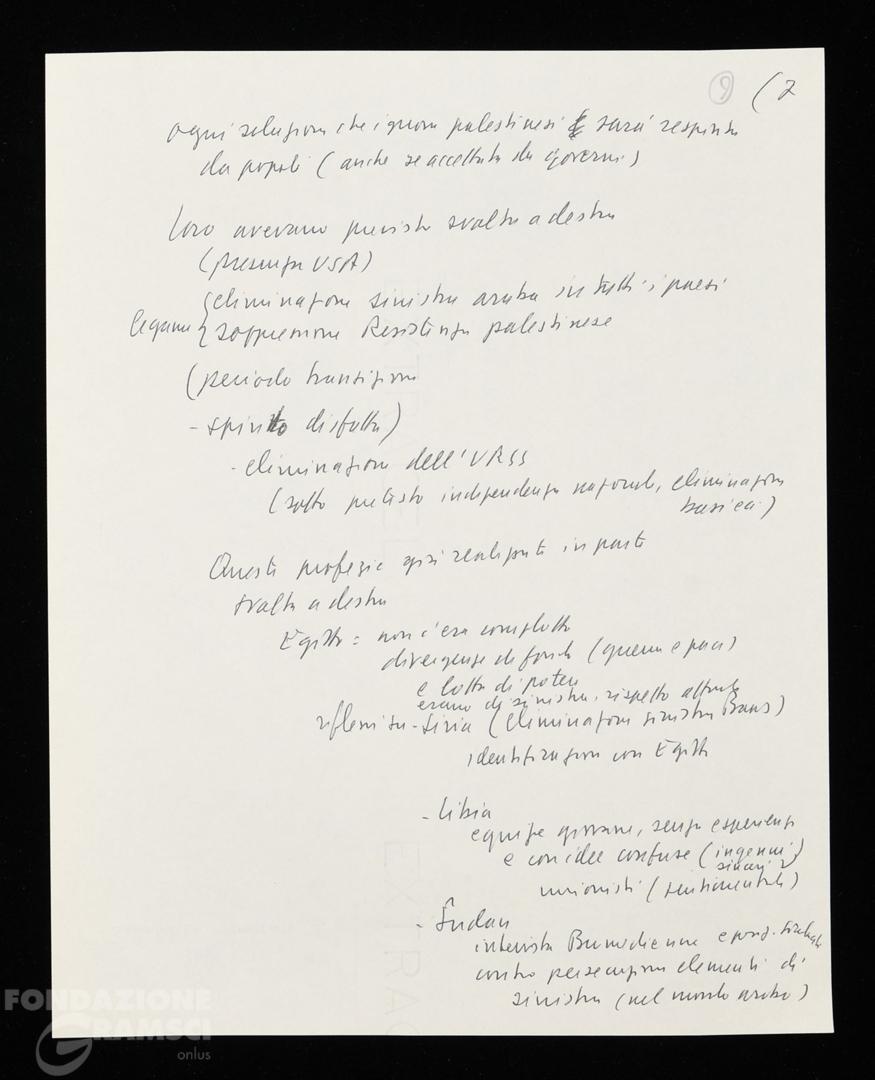 9 (2
ogni soluzione che ignora palestinesi sarà respinta
da popoli (anche se accettata da governi)
Loro avevano previsto svolta a destra
(presenza USA)
legame { eliminazione sinistra araba in tutti i paesi
soppressione Resistenza palestinese
(periodo transizione
- spirito disfatta)
- eliminazione dell'URSS
(sotto pretesto indipendenza nazionale, eliminazione
basi ecc.)
Queste profezie già realizzate in parte
svolta a destra
Egitto = non c'era complotto
divergenze di fondo (guerra e pace)
e lotta di potere
erano di sinistra, rispetto attuale
riflessi su - Siria (eliminazione sinistra Baas)
identificazione con Egitto
- Libia
equipe giovane, senza esperienza
e con idee confuse (ingenui
sinceri)
unionisti (sentimentali)
- Sudan
intervista Bumedienne e pos.
contro persecuzione elementi di
sinistra (nel mondo arabo)
FONDAZIONE
GRAMSCI
onlus